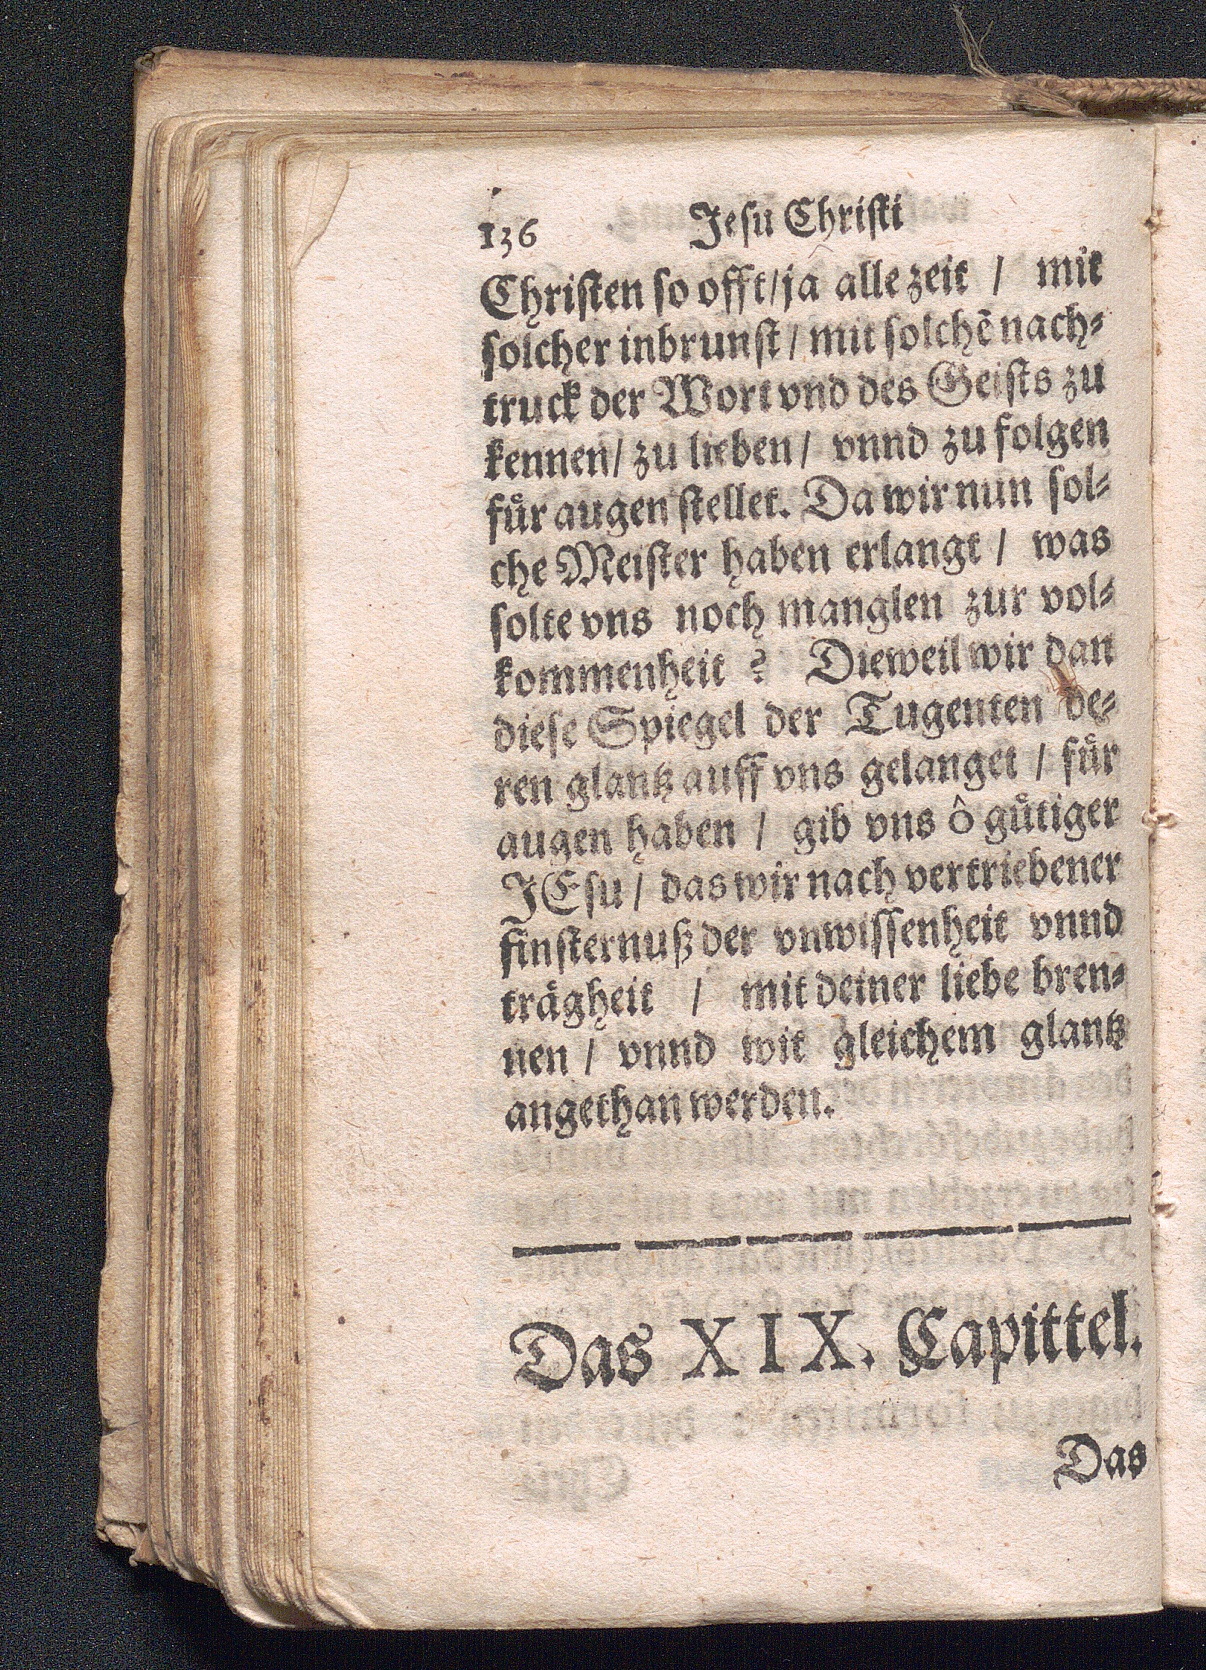 136 Jesu Christi
Christen so offt/ja alle zeit / mit
solcher inbrunst / mit solchẽ nach-
truck der Wort vnd des Geists zu
kennen/ zu lieben / vnnd zu folgen
fuͤr augen stellet. Da wir nun sol-
che Meister haben erlangt / was
solte vns noch manglen zur vol-
kommenheit ? Dieweil wir dan
diese Spiegel der Tugenten de-
ren glantz auff vns gelanget / fuͤr
augen haben / gib vns ô guͤtiger
JEsu / das wir nach vertriebener
finsternuß der vnwissenheit vnnd
traͤgheit / mit deiner liebe bren-
nen / vnnd wit gleichem glantz
angethan werden.
Das XIX. Capittel.
Das